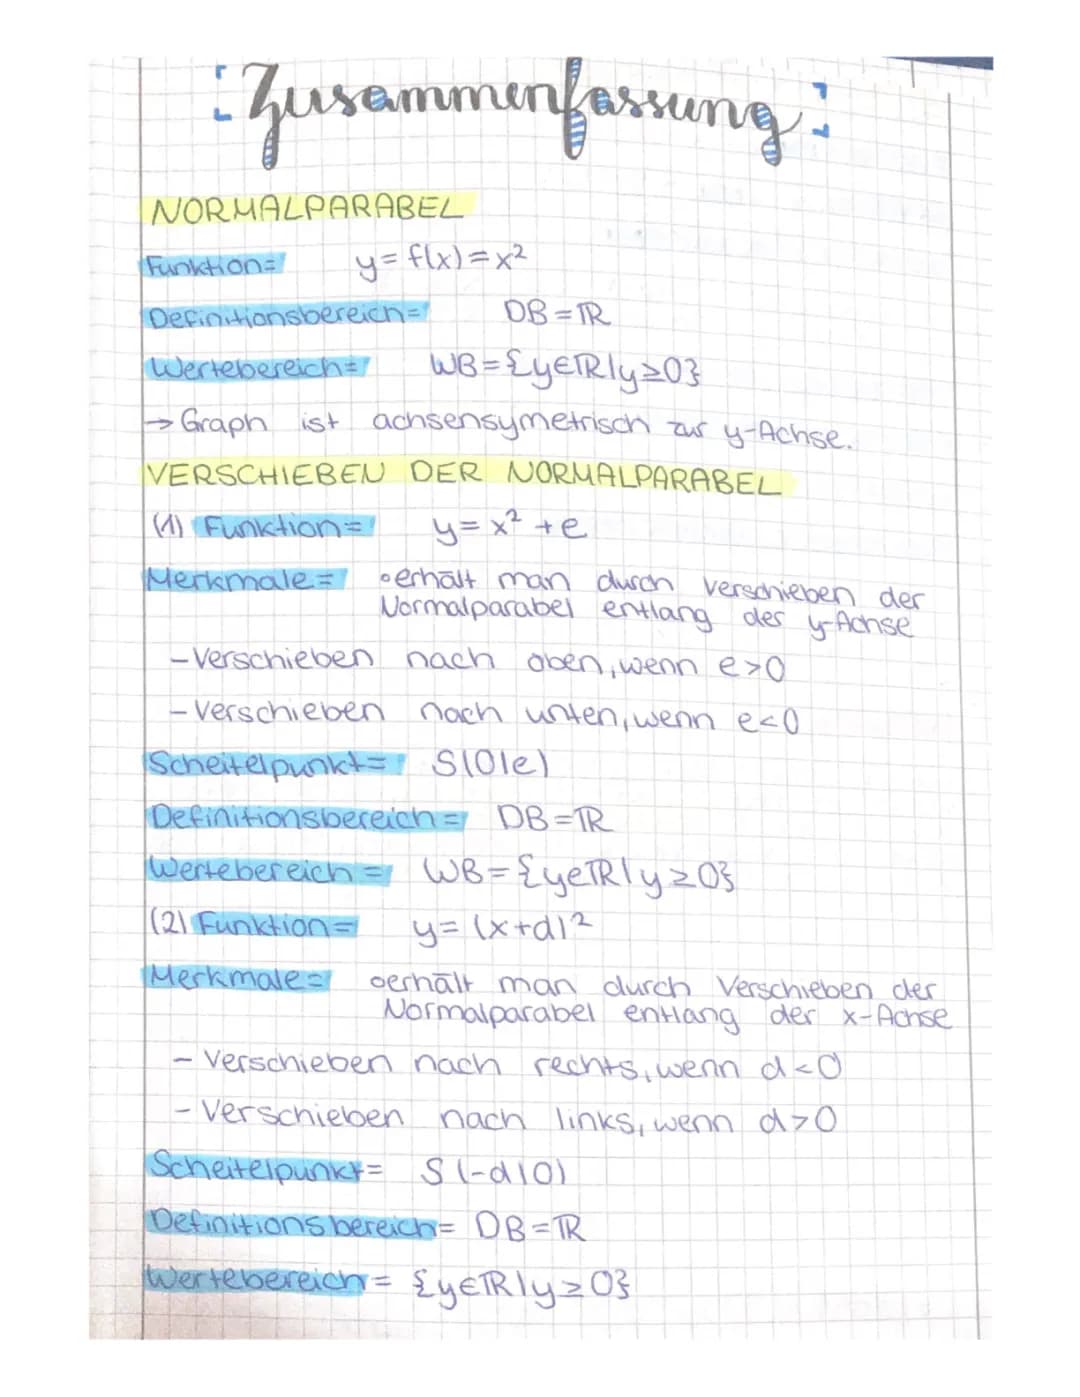 Zusammenfassung:
NORMALPARABEL
Funktion= y=f(x)=x²
Definitionsbereich= DB=ℝ
Wertebereich= WB={y∈ℝ|y≥0}
→ Graph ist achsensymetrisch zur y-Achse.
VERSCHIEBEN DER NORMALPARABEL
(1) Funktion= y=x²+e
Merkmale= •erhält man durch Verschieben der
Normalparabel entlang der y-Achse
-Verschieben nach oben, wenn e>0
-Verschieben nach unten, wenn e<0
Scheitelpunkt= S(0|e)
Definitionsbereich= DB=ℝ
Wertebereich= WB={y∈ℝ|y≥0}
(2) Funktion= y=(x+d)²
Merkmale= •erhält man durch Verschieben der
Normalparabel entlang der x-Achse
- Verschieben nach rechts, wenn d<0
-Verschieben nach links, wenn d>0
Scheitelpunkt= S(-d|0)
Definitionsbereich= DB=ℝ
Wertebereich= {y∈ℝ|y≥0}